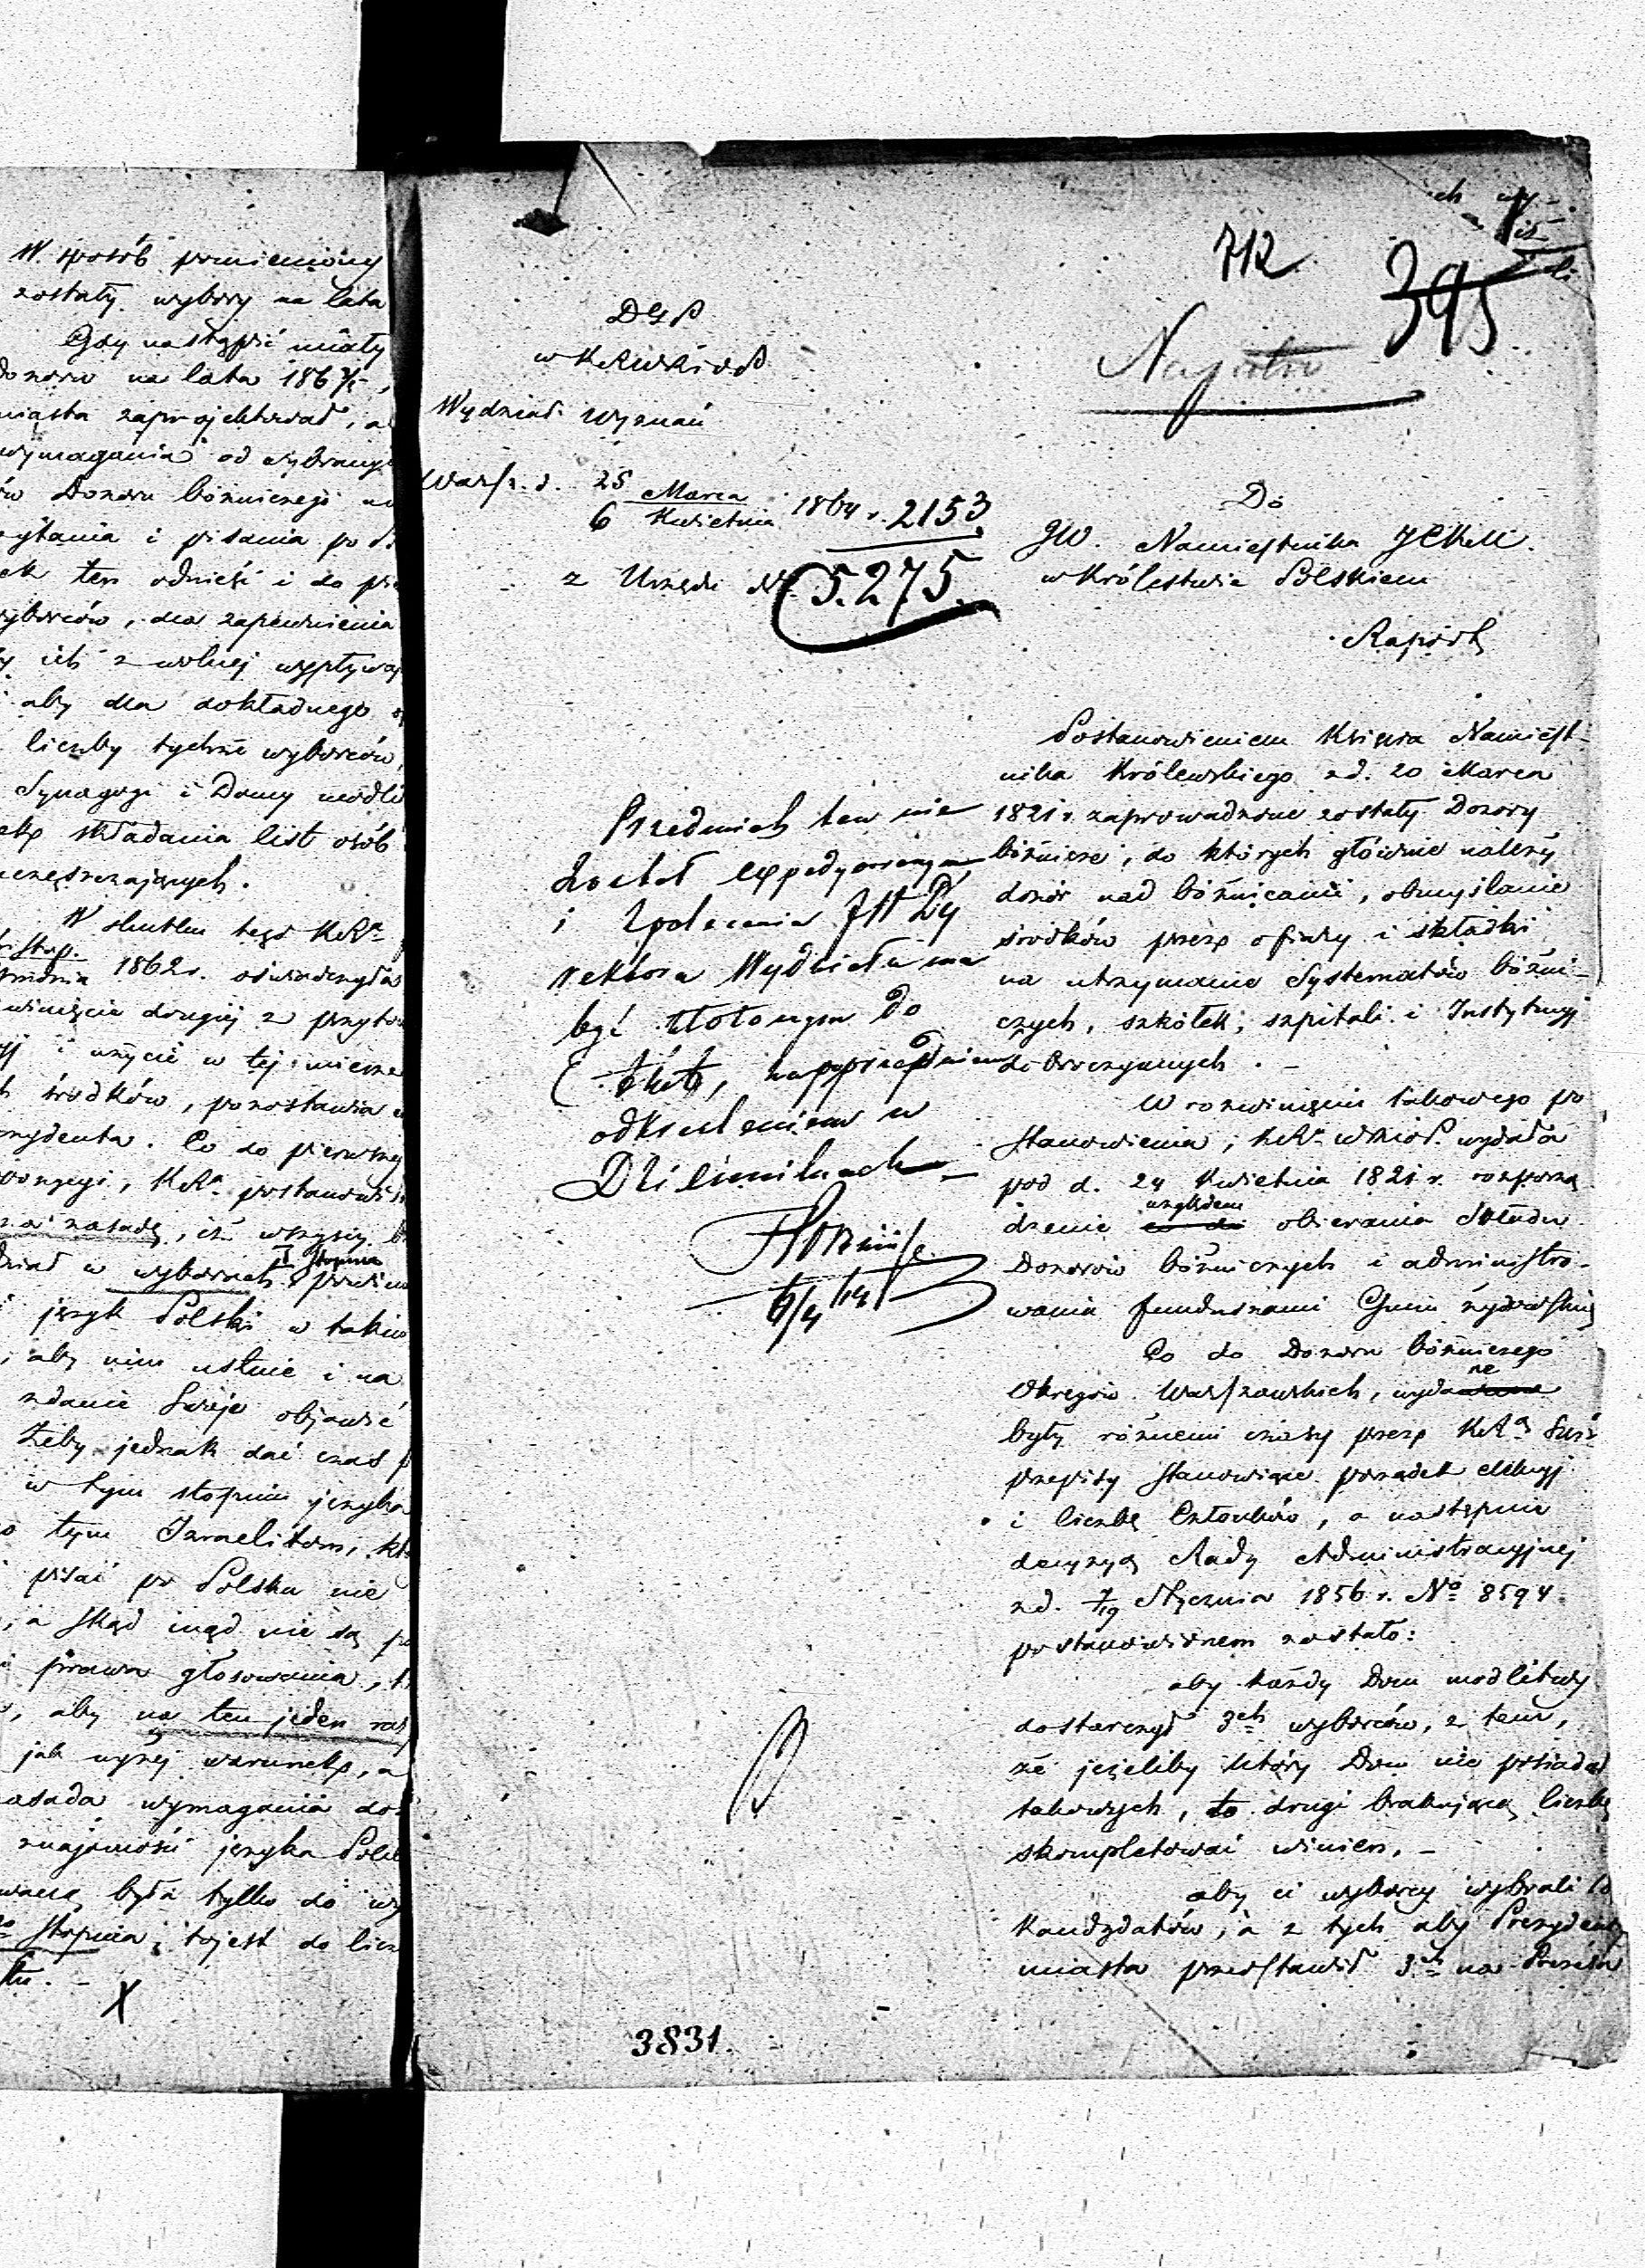 W sposób pomieniony
zostały wybory na lata
Gdy nastąpić miały
Dozoru na lata 186
miasta zaprojektował, a
wymagania od wybrany
ów Dozoru bóżniczego
czytania i pisania po
ten odnieść i do
wyborców, dla zapewnienia
ich z wolnej wypływa
aby dla dokładnego
liczby tychże wyborców,
Synagogi i Domy modli
składania list osób
uczęszczających.
W skutku tego KRa
1862 r. oświadczyła
winięcie drugiej z przyto
i użycie w tej mierze
środków, pozostawia
zydenta. Co do pierwszej
KRa postanowi
za zasadę, iż wszyscy
dział w wyborach I Stopnia powinni
język Polski w takim
aby nim ustnie i na
zdanie swoje objawić
Żeby jednak dać czas
w tym stopniu języka
tym Izraelitom,
pisać po Polsku nie
a skąd inąd nie są
prawa głosowania,
aby na ten jeden raz
jak wyżej warunek, a
asada wymagania
znajomości języka Pols
była tylko do wy
Stopnia, to jest do licz
X
712
395
DGS
w KRWRiOP
Wydział Wyznań
Warsz. d. 25 Marca
6 Kwietnia 1864 r. 2153
z Urzędu No 5.275.
Do
JW. Namiestnika JCKM.
w Królestwie Polskiem
Raport
Przedmiot ten nie
został expedyowanym
i z polecenia JW Dy
rektora Wydziału ma
być złożonym do
Akt, za poprzedniem
odkreśleniem w
Dziennikach
6/4 64
Postanowieniem Księcia Namiest-
nika Królewskiego z d. 20 Marca
1821 r. zaprowadzone zostały Dozory
bóżnicze, do których głównie należy
dozór nad bóżnicami, obmyślanie
środków przez ofiary i składki
na utrzymanie Systematów bóżni-
czych, szkółek, szpitali i Instytucyj
dobroczynnych. -
W rozwinięciu takowego po
stanowienia, KRa WRiOP. wydała
pod d. 24 Kwietnia 1821 r. rozporzą
dzenie co do względem obierania Składu
Dozorów bóżniczych i administro-
wania funduszami Gmin żydowskiej
Co do Dozoru bóżniczego
Okręgów Warszawskich, wydane
były różnemi czasy przez KRą
przepisy stanowiące porządek elekcyj
i liczbę Członków, a następnie
decyzyą Rady Administracyjnej
z d. 7/19 Stycznia 1856 r. No 8594
postanowionem zostało:
aby każdy Dom modlitwy
dostarczył 3ch wyborców, z tem,
że jeżeliby który Dom nie posiadał
takowych, to drugi brakującą liczbę
skompletować winien. -
aby ci wyborcy wybrali
Kandydatów, a z tych aby Prezydent
miasta przedstawił 3ch na Prezesa
3831.